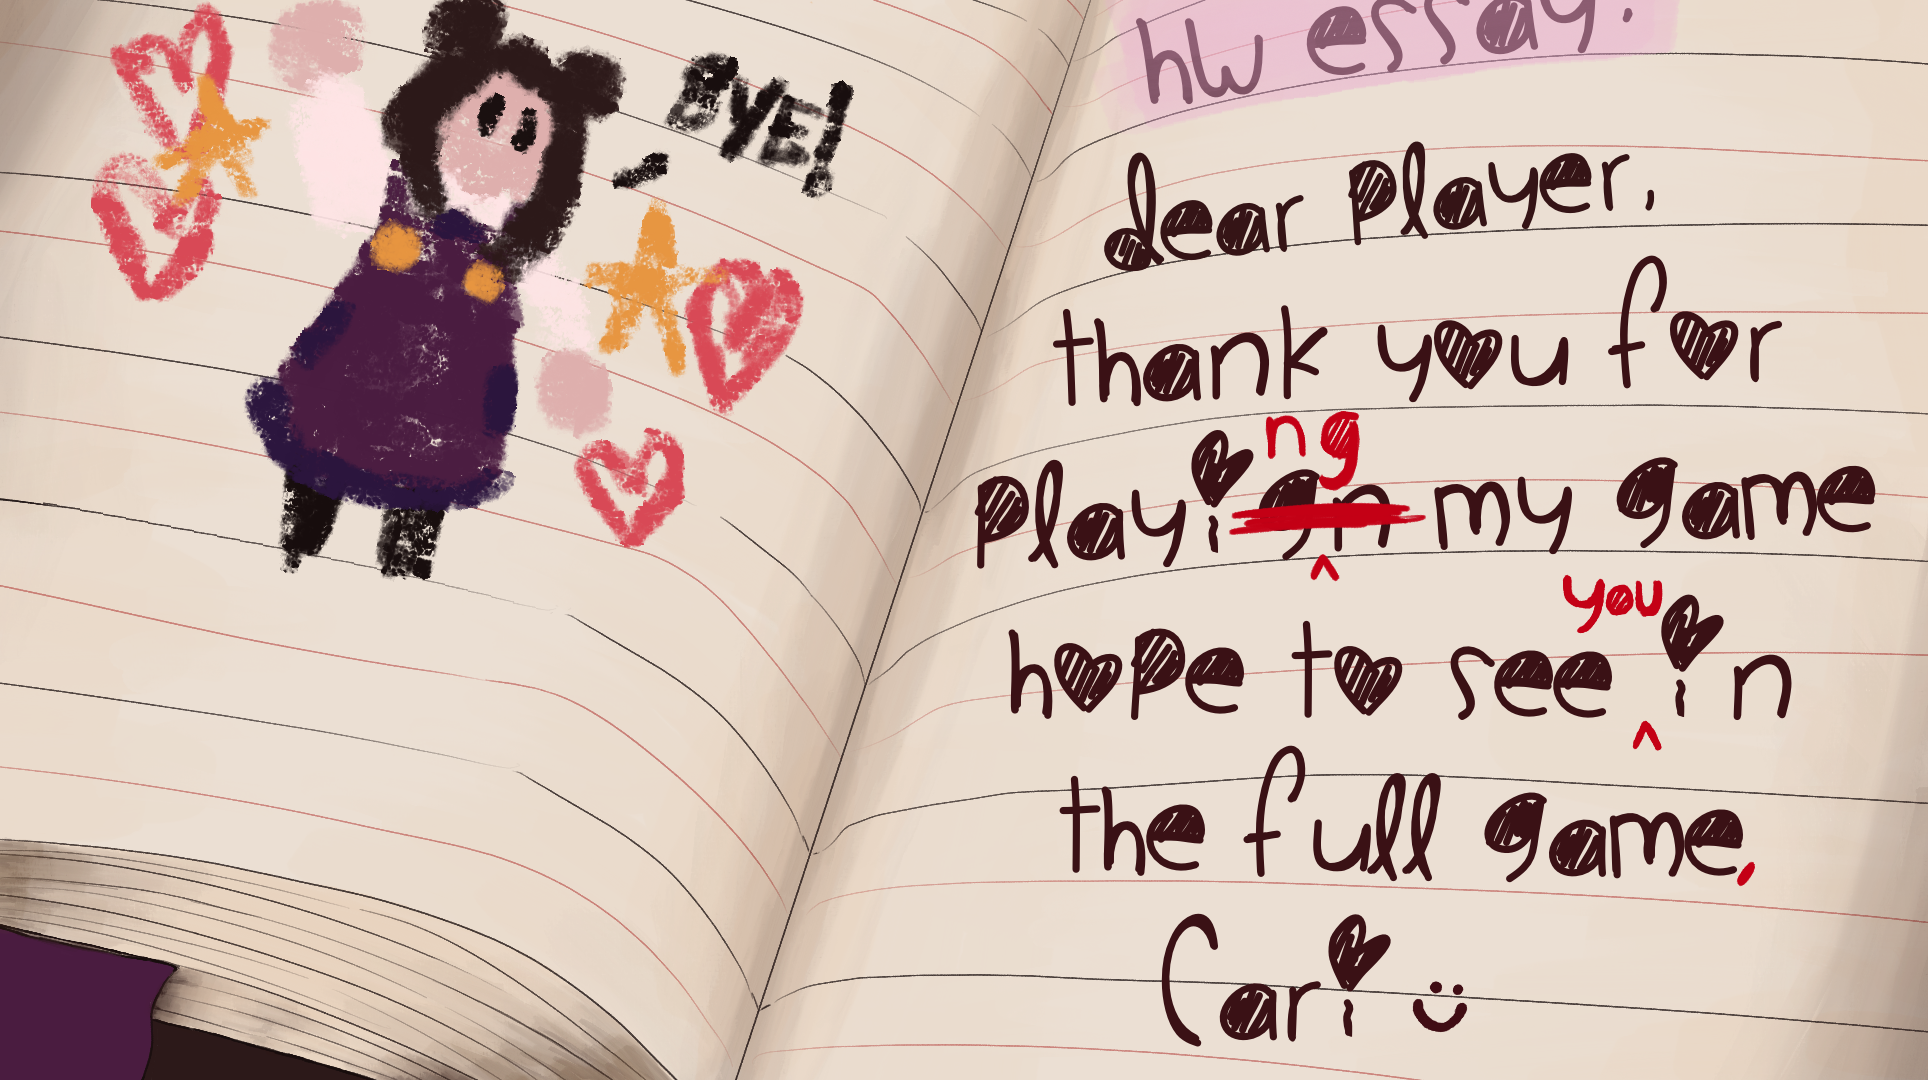 BYE!
hw essay.
dear player,
thank you for
playign ng my game
hope to see you in
the full game,
Cari